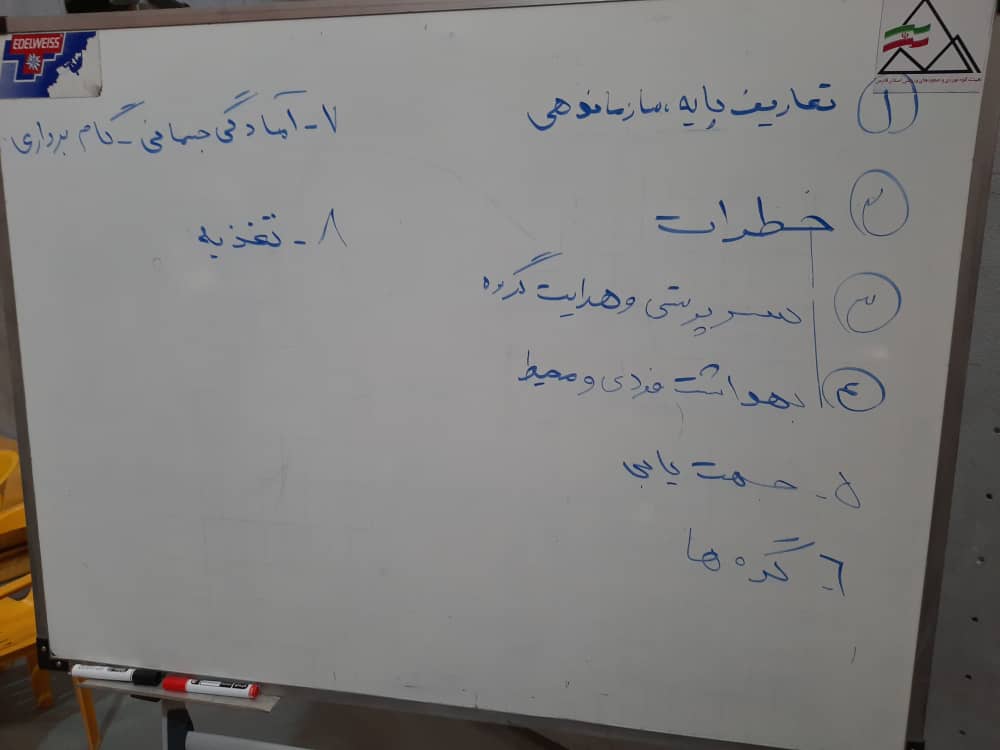 EDELWEISS
هیئت کوه نوردی و صعودهای ورزشی استان فارس
۱ تعاریف پایه، سازماندهی
۲ خطرات
۳ سرپرستی و هدایت گروه
۴ بهداشت فردی و محیط
۵ـ جهت یابی
۶ـ گره ها
۷ـ آمادگی جسمانی ـ گام برداری
۸ـ تغذیه